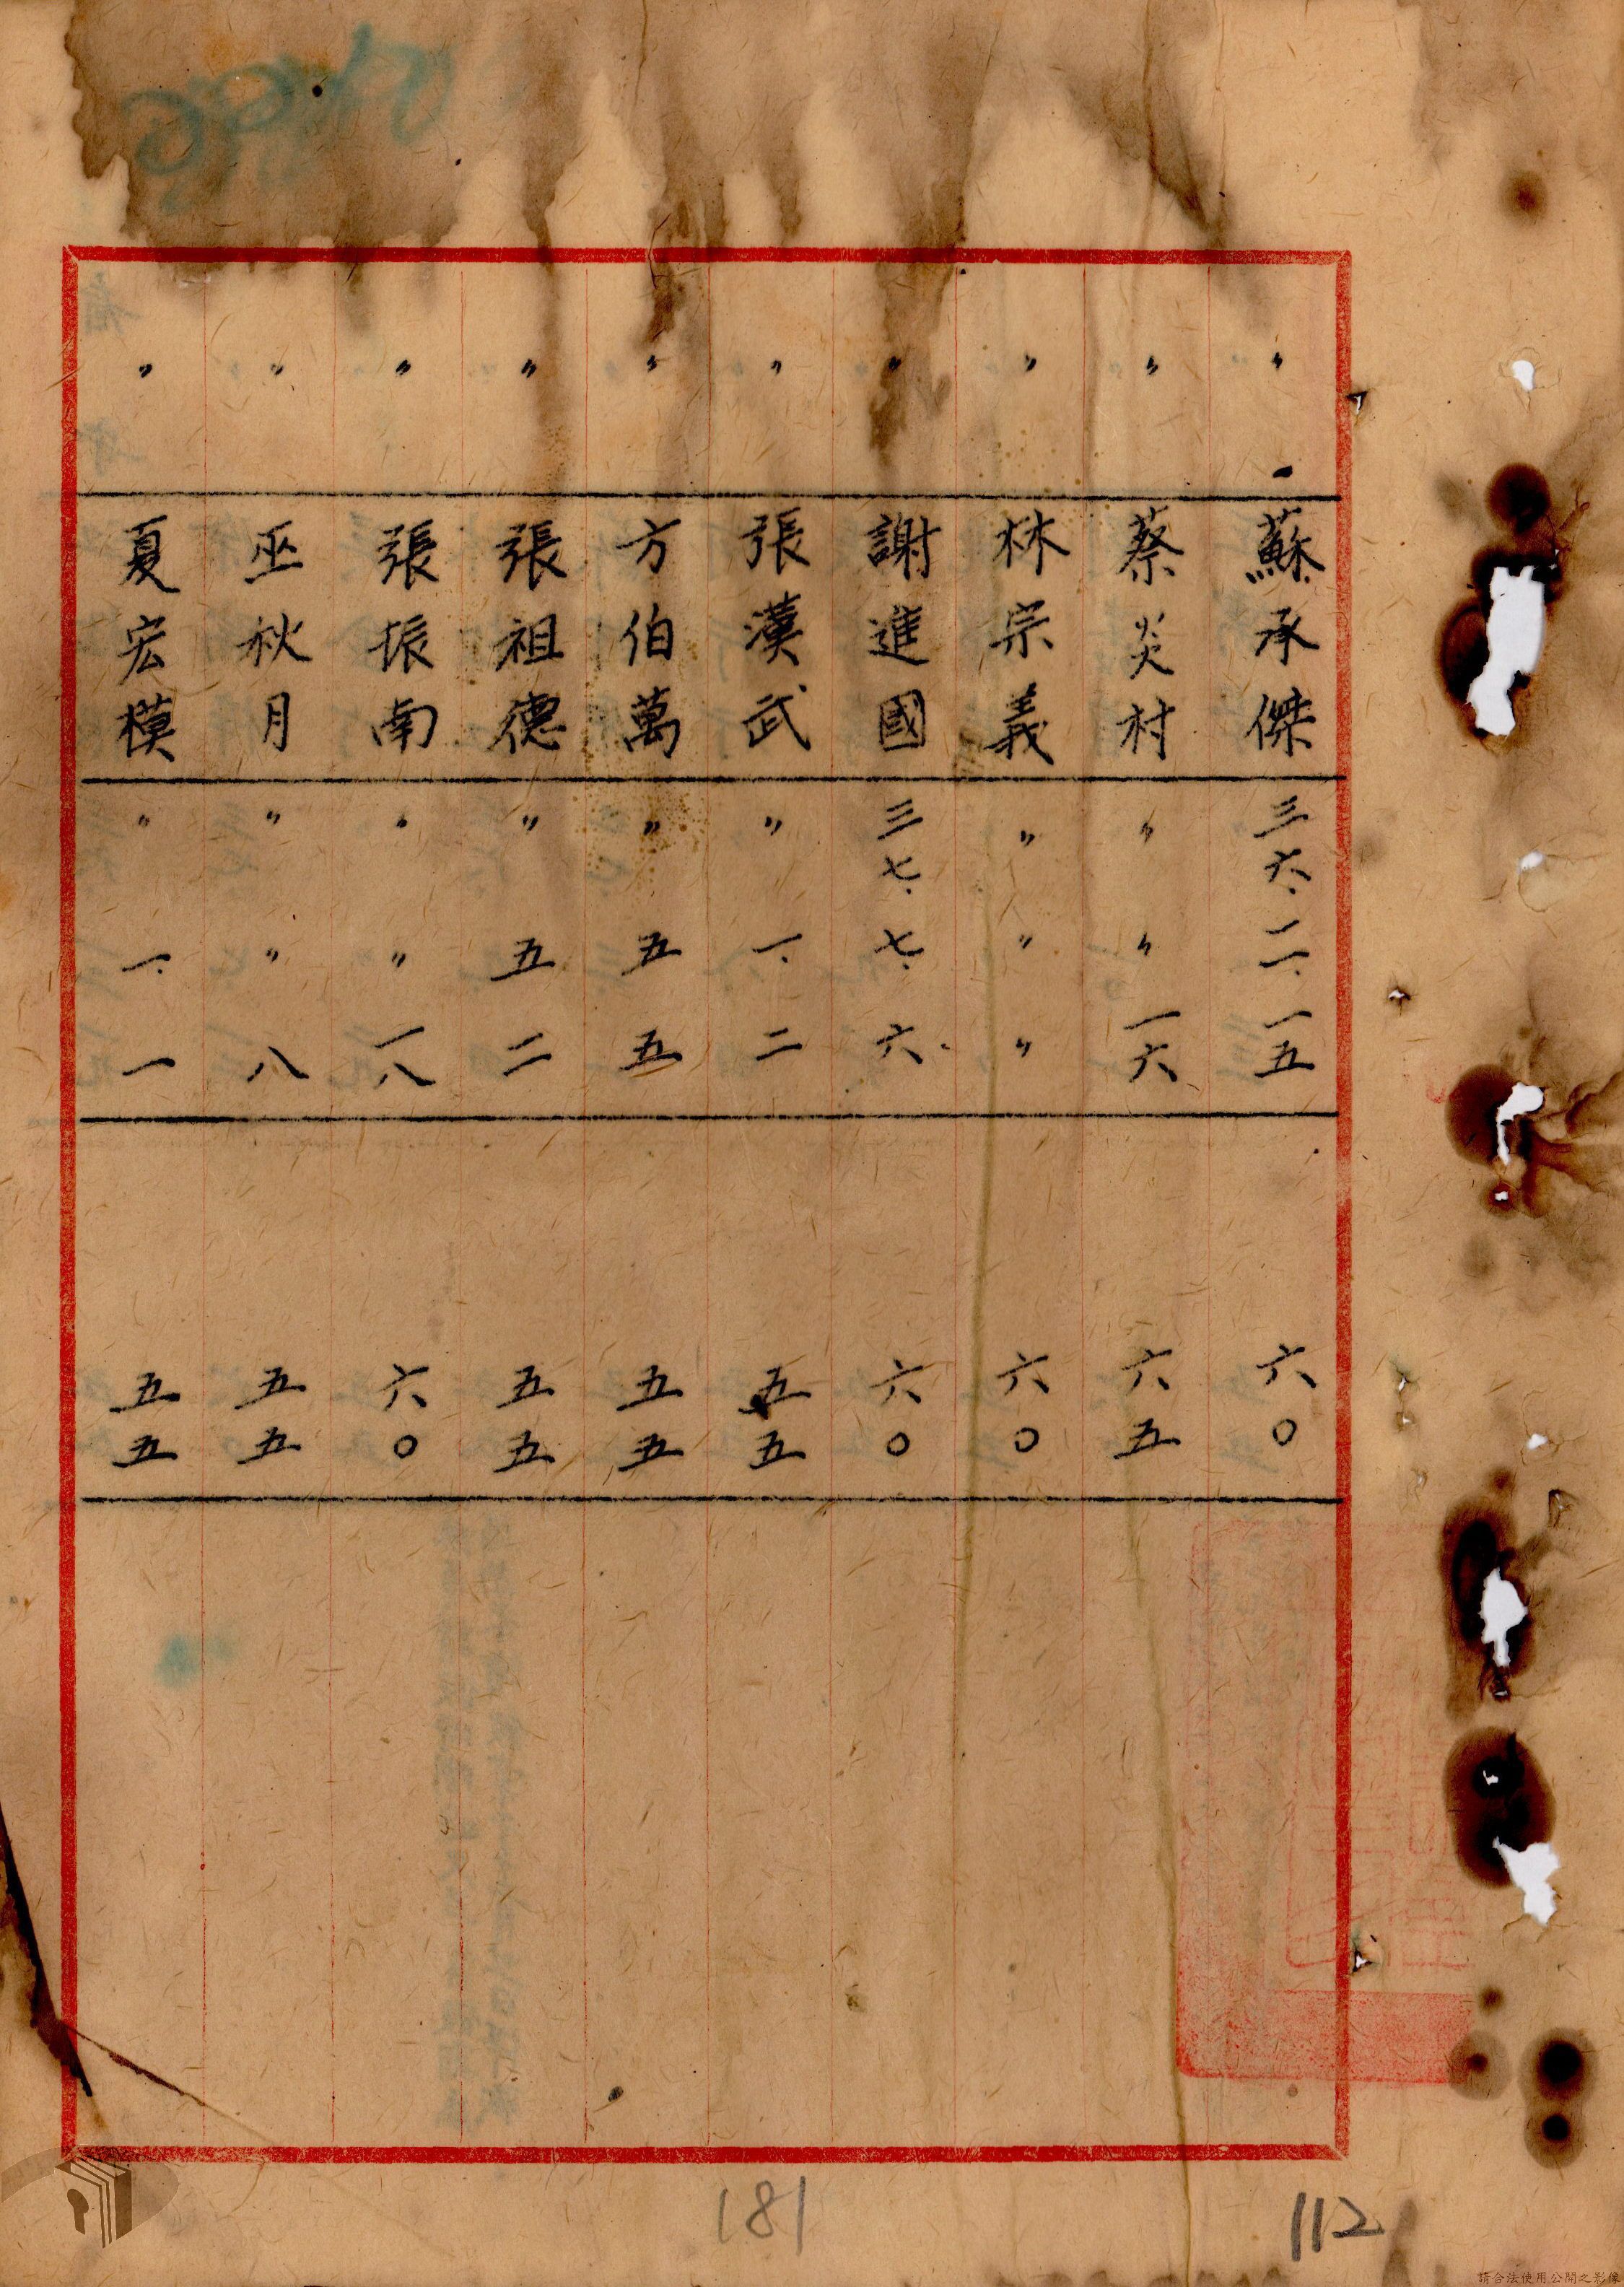 〃 蘇承傑 三六.二.一五 六〇
〃 蔡炎村 〃 〃 一六 六五
〃 林宗義 〃 〃 〃 六〇
〃 謝進國 三七.七.六. 六〇
〃 張漢武 〃 一.二 五五
〃 方伯萬 〃 五 五 五五
〃 張祖德 〃 五 二 五五
〃 張振南 〃 〃 一八 六〇
〃 巫秋月 〃 〃 八 五五
〃 夏宏模 〃 一.一 五五
181
112
請合法使用公開之影像